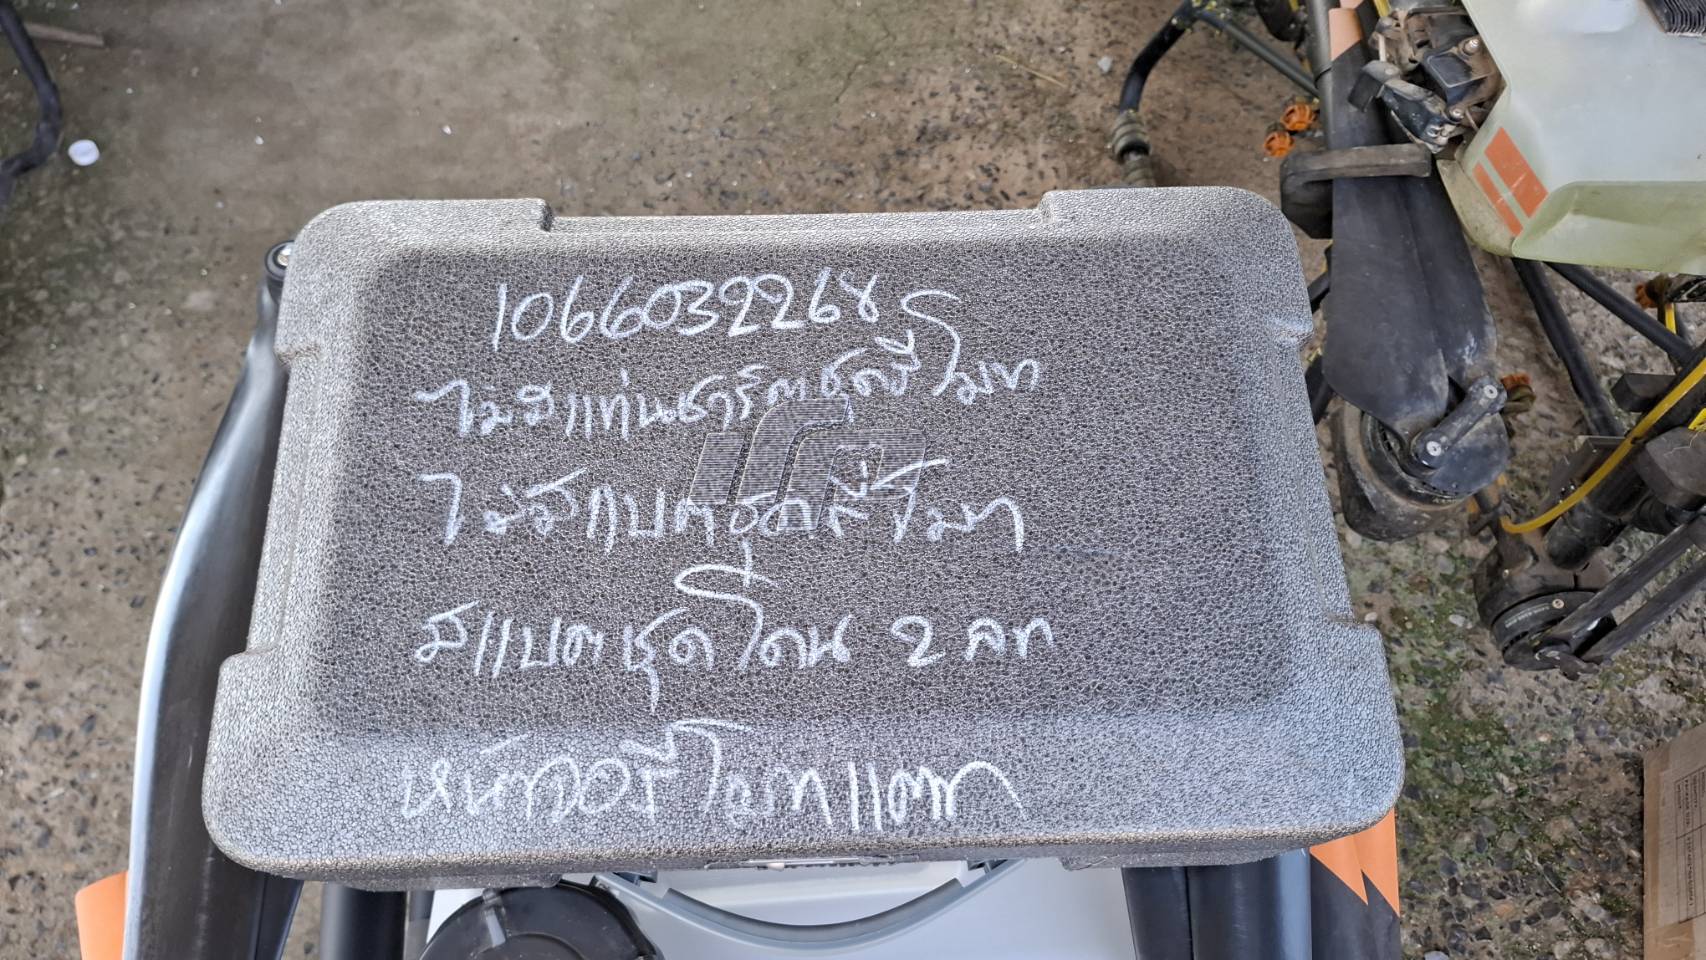 1066032268
ไม่มีแท่นชาร์ตชุดรีโมท
ไม่มีแบตชุดรีโมท
มีแบตชุดโดน 2 ลูก
หน้าจอรีโมทแตก